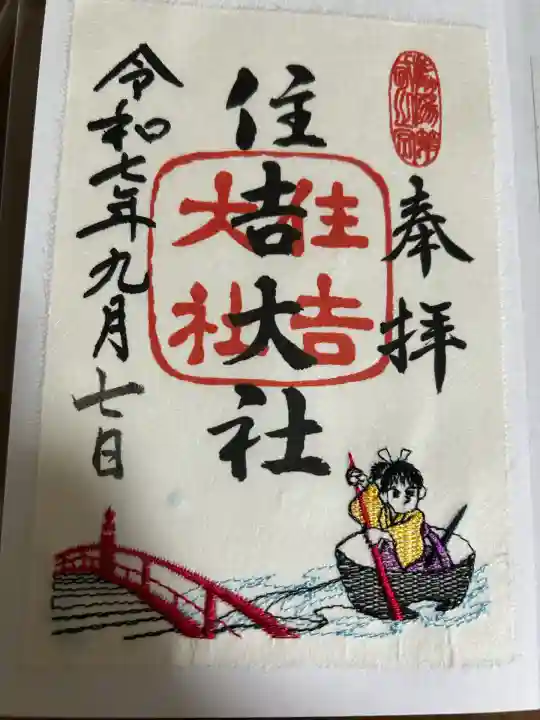 奉拝
住吉大社
住吉大社
令和七年九月七日